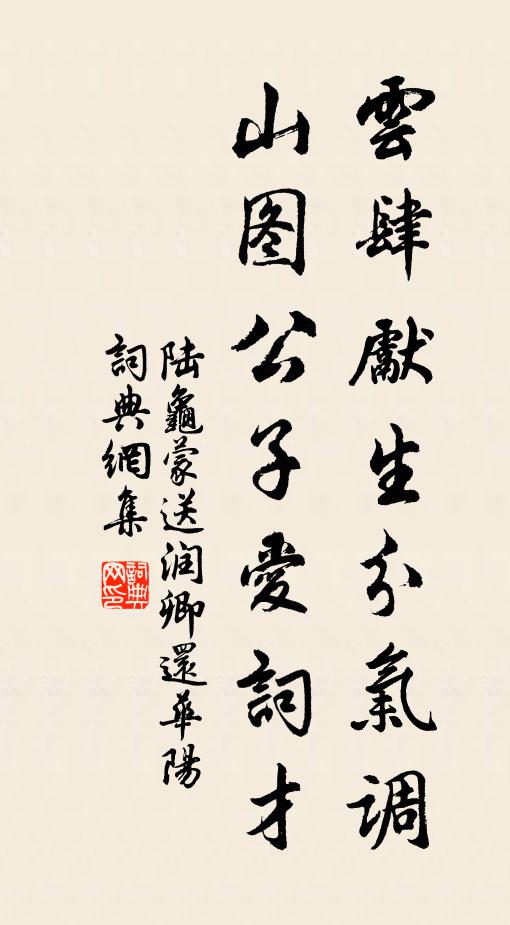 雲肆獻生分氣调
山图公子愛詞才
陆龜蒙送润卿還華陽
詞典網集
詞典网印